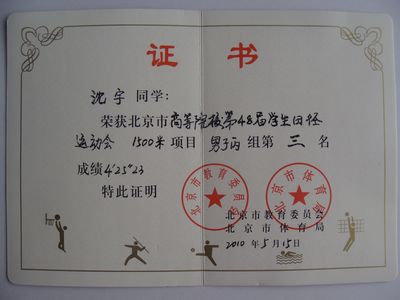 证 书
沈宇 同学：
荣获北京市高等院校第48届学生田径
运动会 1500米 项目 男子丙 组第 三 名
成绩4'25"23
特此证明
北京市教育委员会
北京市体育局
北京市教育委员会
北京市体育局
2010 年 5 月 15 日